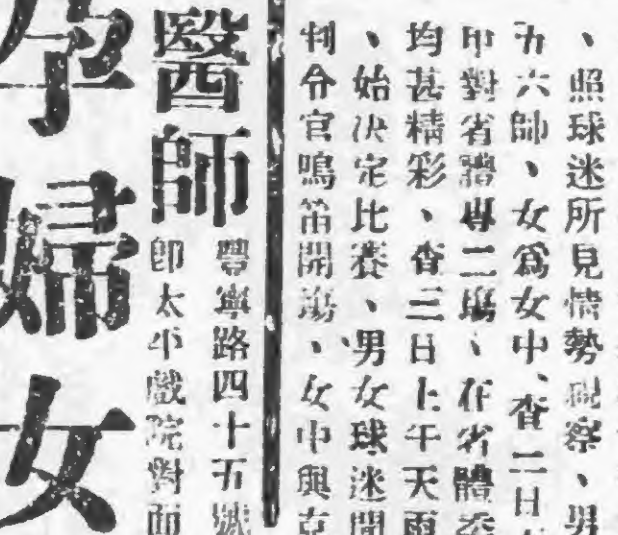 、照球迷所見情勢觀察、男
五六師、女爲女中、查二日
中對省體專二塲、在省體委
均甚精彩、查三日上午天雨
、始決定比賽、男女球迷聞
判令官鳴笛開塲、女中與
豐寧路四十五號
即太平戲院對面
醫師
孕婦女